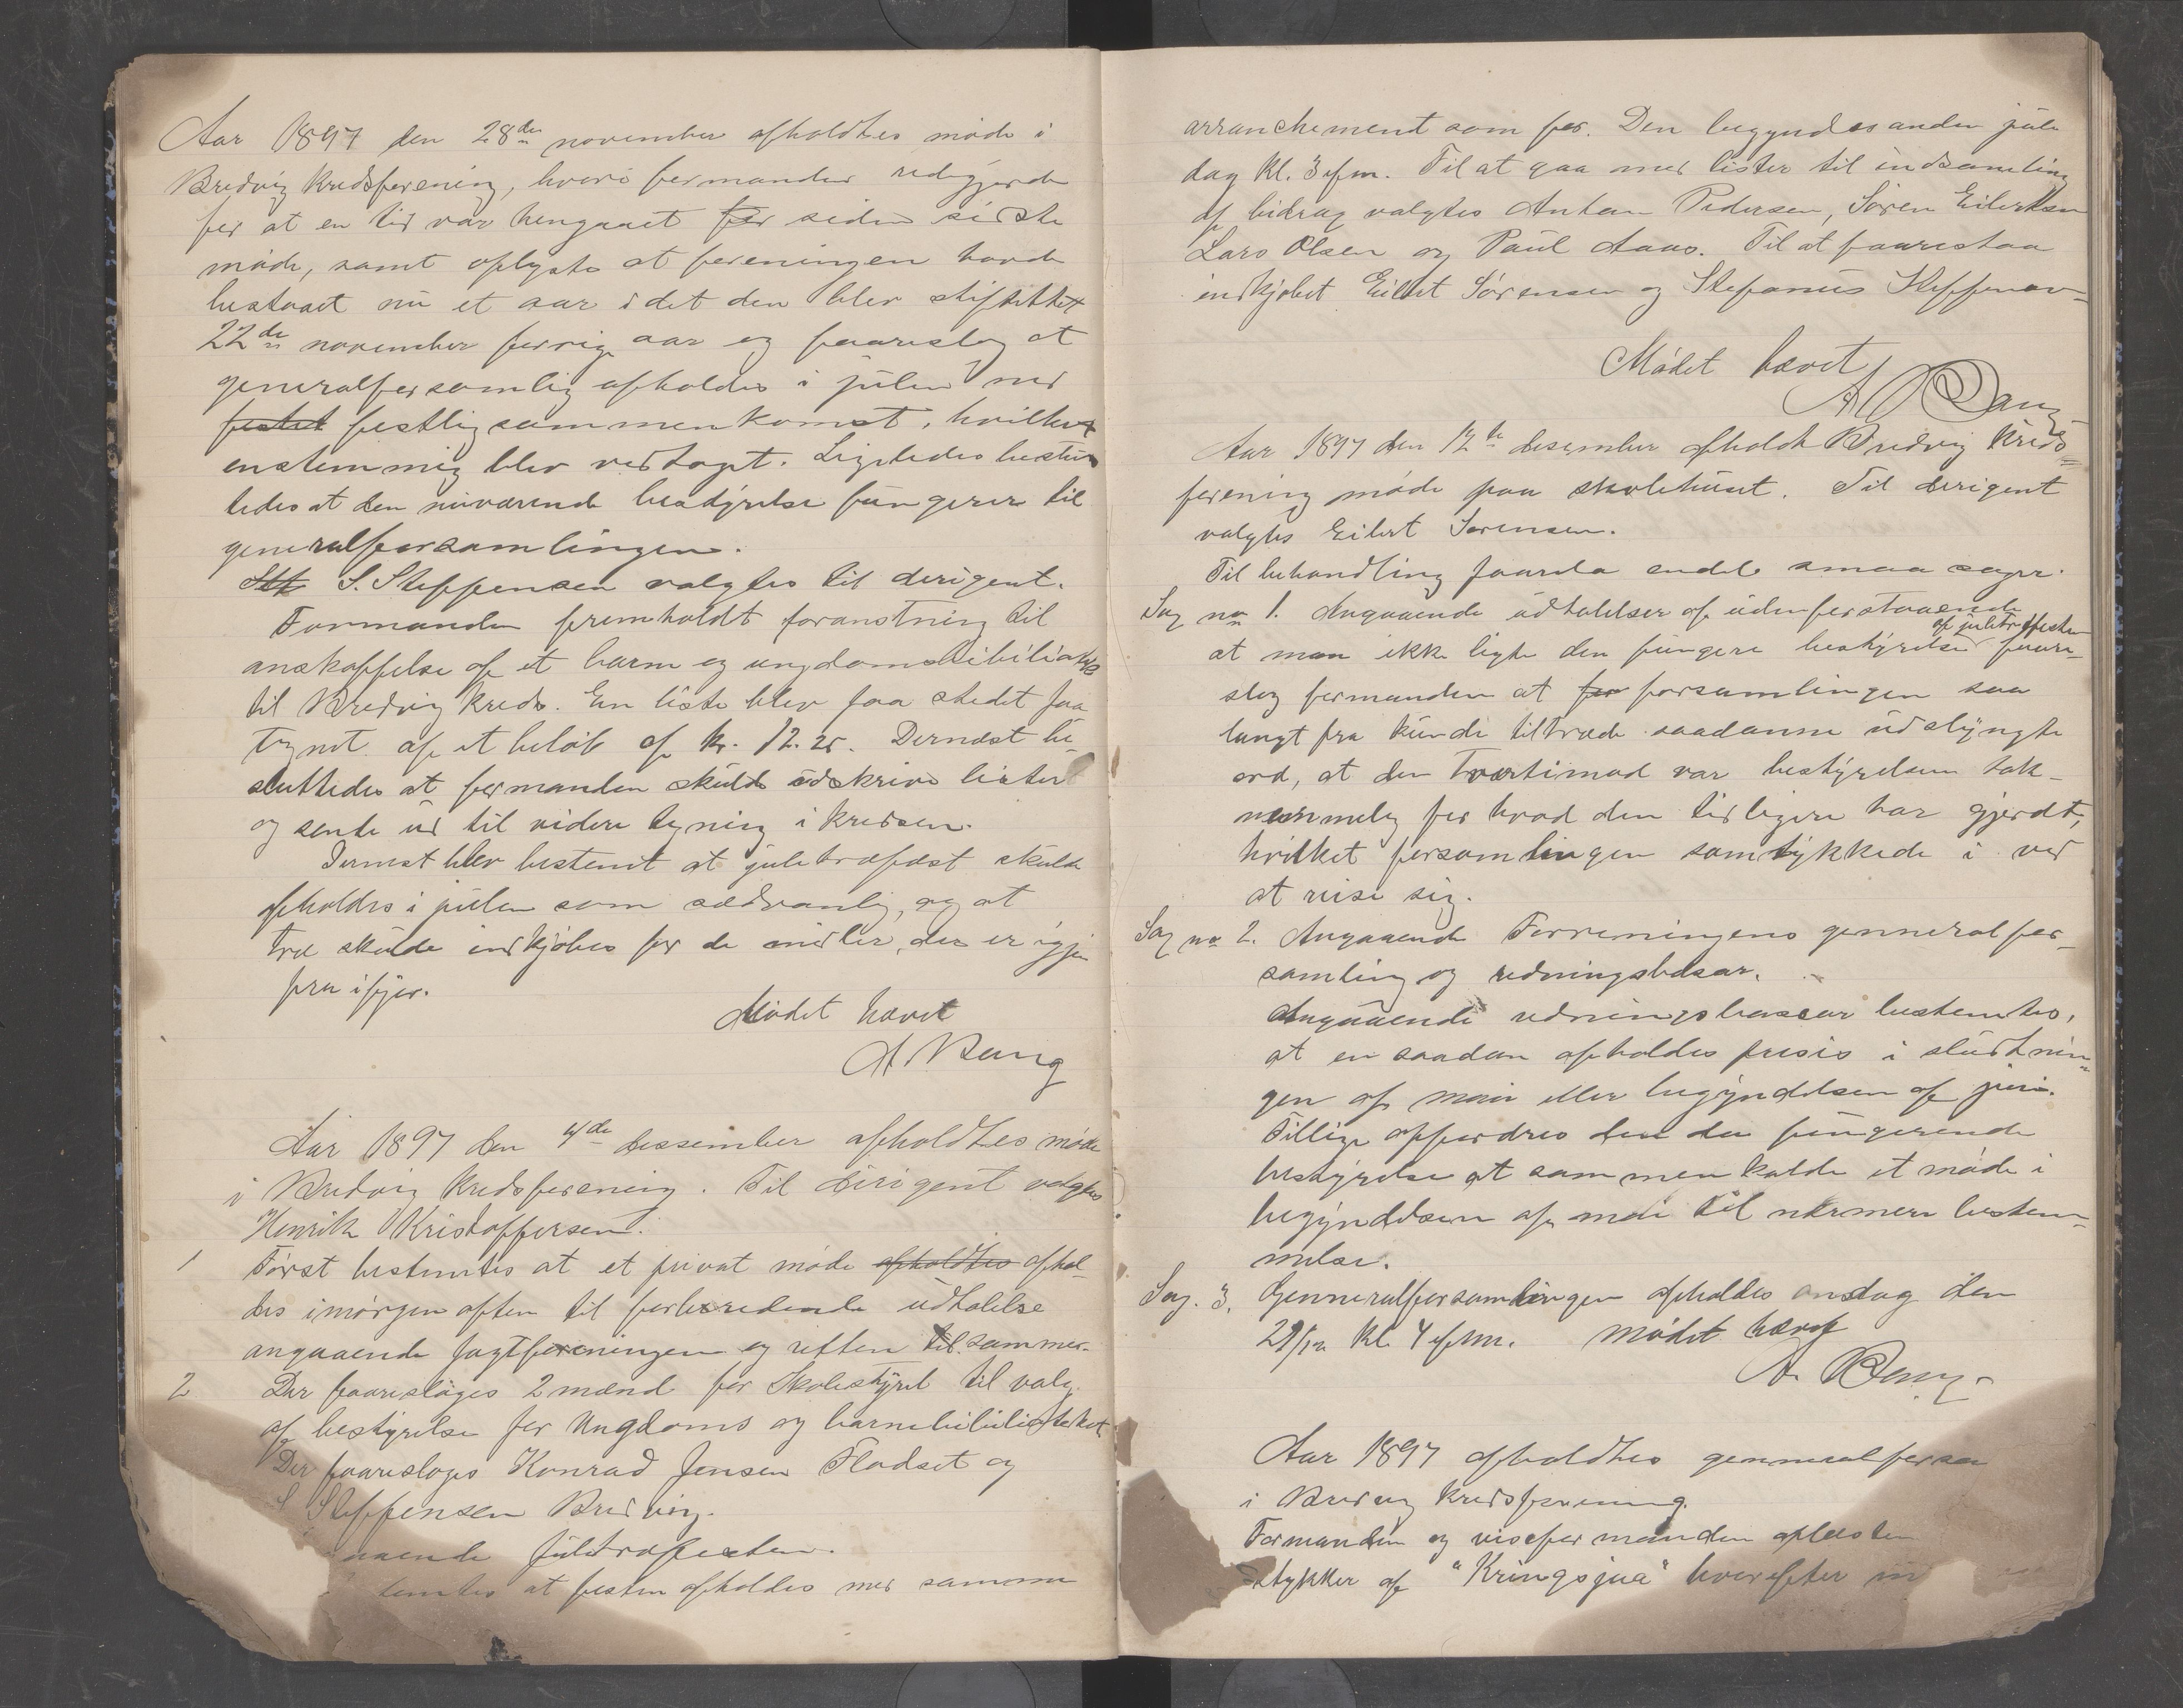 Aar 1897 den 28de november afholdtes møde i
Bredvig Kredsforening, hvori formanden redegjorde
for at en tid var hengaaet for siden sidste
møde, samt oplyste at foreningen havde
bestaaet nu et aar idet den blev stiftettet
22de november forrige aar og foareslog at
generalforsamlig afholdes i julen med
festet festlig sammenkomst, hvilket
enstemmig blev vedtaget. Ligeledes beslut
tedes at den nuværende bestyrelse fungerer til
generalforsamlingen.
Stef S. Steffensen valgtes til dirigent.
Formanden fremholdt foranstning til
anskaffelse af et barm og ungdomsbibiliothek
til Bredvig Kreds. En liste blev paa stedet paa
tegnet af et beløb af kr. 12.25. Dernæst be-
sluttedes at formanden skulde udskrive lister
og sende ud til videre tegning i kredsen.
Dernest blev bestemt at juletræfæst skulde
afholdes i julen som sædvanlig, og at
træ skulde indkjøbes for de midler, der er igjen
fra ifjor.
Mødet hævet
A Bang
Aar 1897 den 4de dessember afholdtes møde
i Bredvig Kredsforening. Til dirigent valgtes
Henrik Kristoffersen.
1 Først bestemtes at et privat møde afholdtes afhol-
des imorgen aften til forberedende udtalelse
angaaende fagtforeningen og retten til sammen.
2 Der foareslöges 2 mænd for Skolestyret til valg
af bestyrelse for Ungdoms og barnebibiliotheket
Der foaresloges Konrad Jensen Flodset og
S Steffensen Bredvig.
aaende Juletræfesten.
temtes at festen afholdes med samme
arranchement som før. Den begyndes anden jule
dag Kl. 3 efm. Til at gaa med lister til indsamling
af bidrag valgtes Anton Pedersen, Søren Eilertsen
Lars Olsen og Paul Aaas. Til at foarestaa
indkjøbet Eilert Sørensen og Stefanus Steffensen
Mødet hævet
A Bang
Aar 1897 den 12te desember afholdt Bredvig Kreds-
forening møde paa skolehuset. Til derigent
valgtes Eilert Sørensen.
Til behandling foarela endel smaa sager.
Sag no 1. Angaaende udtalelser af udenforstaaende
af juletræfesten
at man ikke ligte den fungere bestyrelse foare-
slog formanden at for forsamlingen saa
langt fra kunde tiltræde saadanne udslyngte
ord, at den tvertimod var bestyrelsen tak-
nemmelig for hvad den tidligere har gjordt,
hvilket forsamlingen samtykkede i ved
at reise sig.
Sag no 2. Angaaende Forreningens genneralfor-
samling og redningsbasar.
Angaaende redningsbassar bestemtes,
at en saadan afholdes presis i slutnin-
gen af mai eller begyndelsen af juni.
Tillige opfordres den da fungerende
bestyrelse at sammenkalde et møde i
begyndelsen af mai til nærmere bestem-
melse.
Sag. 3. Genneralforsamlingen afholdes onsdag den
29/12 Kl. 4 efm. mødet hævet
A. Bang
Aar 1897 afholdtes genneralforsa
i Bredvig Kredsforening.
Formanden og viseformanden oplæste
Stykker af "Kringsjaa" hvorefter